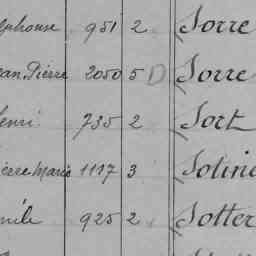 lphonse 951 2 Sorre
ean Pierre 2050 5 D Sorre
enri 735 2 Sort
ierre Marie 1117 3 Sotin
mile 925 2 Sotter